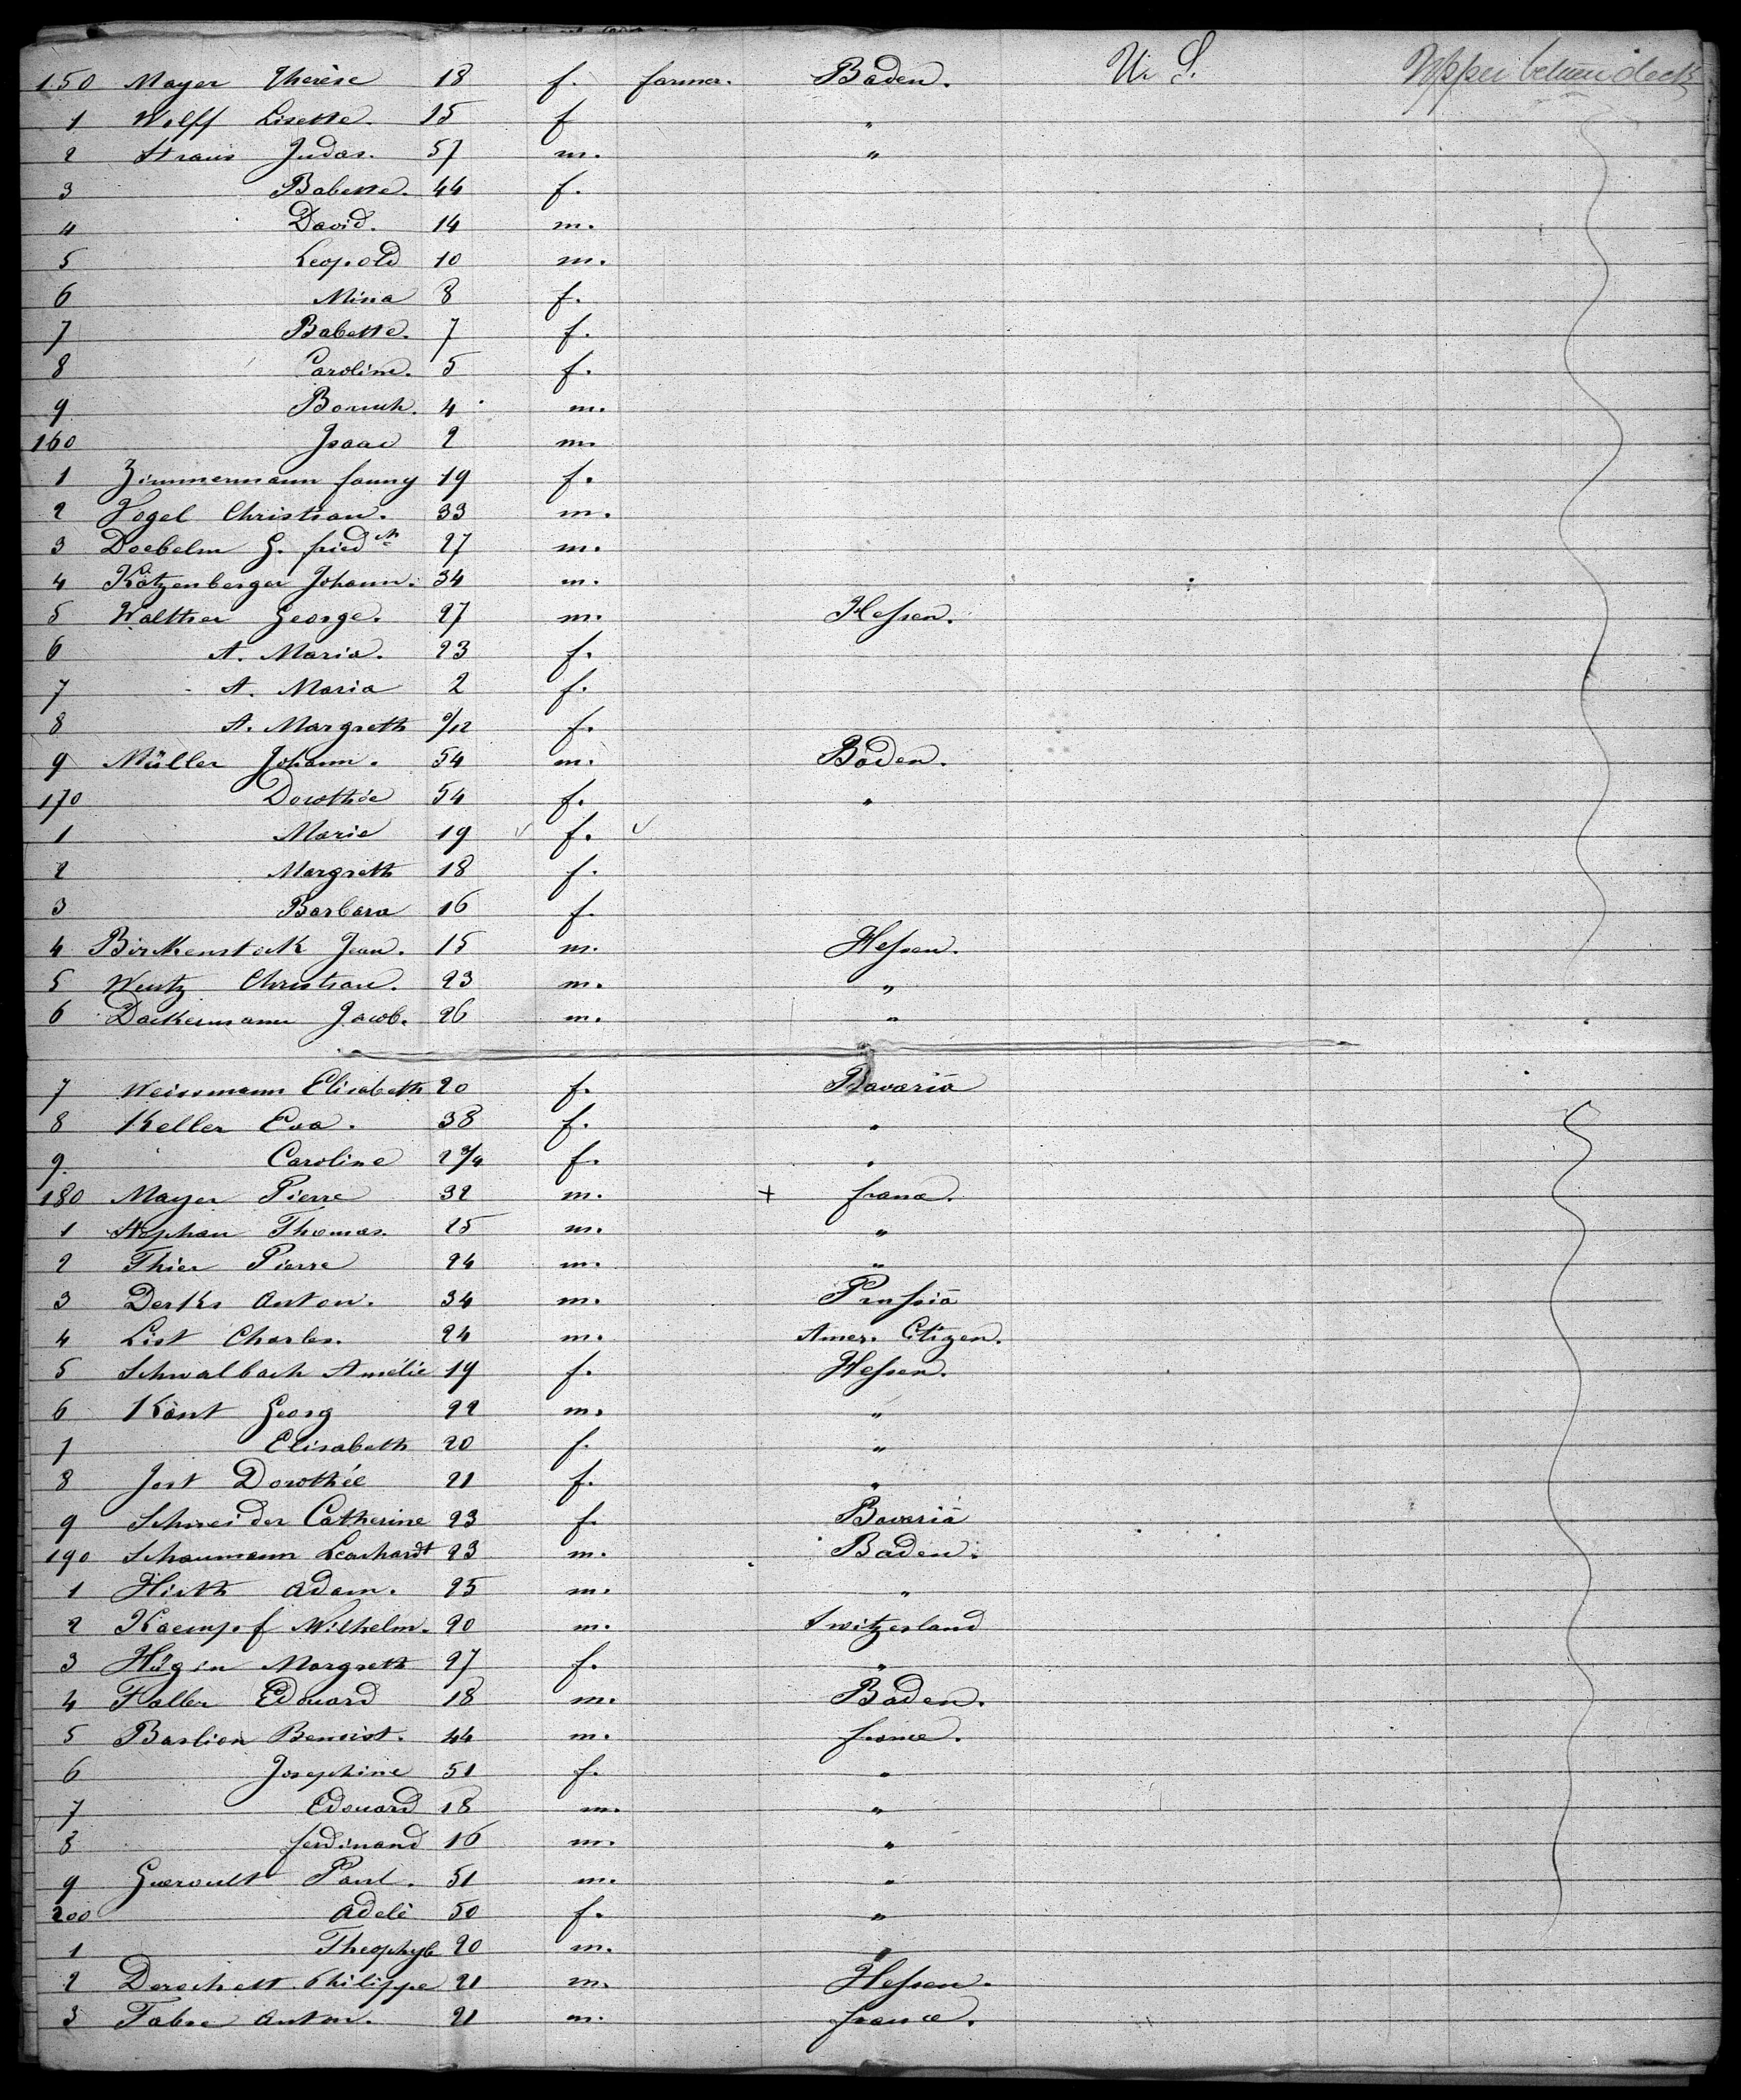 150 Mayer Therèse 18 f. farmer. Baden. U. S. Upper between decks
1 Wolff Lisette. 15 f "
2 Straus Judas. 57 m. "
3 Babette. 44 f.
4 David. 14 m.
5 Leopold 10 m.
6 Mina 8 f.
7 Babette. 7 f.
8 Caroline. 5 f.
9 4 m.
160 Isaac 2 m.
1 Zimmermann fanny 19 f.
2 Vogel Christian. 33 m.
3 Doebelm G. fried 27 m.
4 Katzenberger Johann. 34 m.
5 Walther George. 27 m. Hessen.
6 A. Maria. 23 f.
7 A. Maria 2 f.
8 A. Margreth 9/12 f.
9 Müller Johann. 54 m. Baden.
170 Dorothée 54 f. "
1 Marie 19 f.
2 Margreth 18 f.
3 Barbara 16 f.
4 Birckenstock Jean. 15 m. Hessen.
5 Wentz Christian. 23 m. "
6 Dackermann Jacob. 26 m. "
7 Weissmann Elisabeth 20 f. Bavaria
8 Keller Eva. 38 f. "
9. Caroline 2 3/4 f. "
180 Mayer Pierre 32 m. + france.
1 Stephan Thomas. 25 m. "
2 Thier Pierre 24 m. "
3 Derks Anton. 34 m. Prussia
4 List Charles. 24 m. Amer. Citizen.
5 Schwalbach Amélie 19 f. Hessen.
6 Kant Georg 22 m. "
7 Elisabeth 20 f. "
8 Jost Dorothée 21 f. "
9 Schneider Catherine 23 f. Bavaria
190 Schaumann Leonhardt 23 m. Baden.
1 Hirth Adam. 25 m. "
2 Kaempf Wilhelm. 20 m. Switzerland
3 Hügin Margreth 27 f. "
4 Faller Edouard 18 m. Baden.
5 Bastien Benoist. 44 m. france.
6 Josephine 51 f. "
7 Edouard 18 m. "
8 ferdinand 16 m. "
9 Gueroult Paul. 51 m. "
200 Adelè 50 f. "
1 Theophyle 20 m. "
2 Philippe 21 m. Hessen.
3 Fabre Anton. 21 m. france.